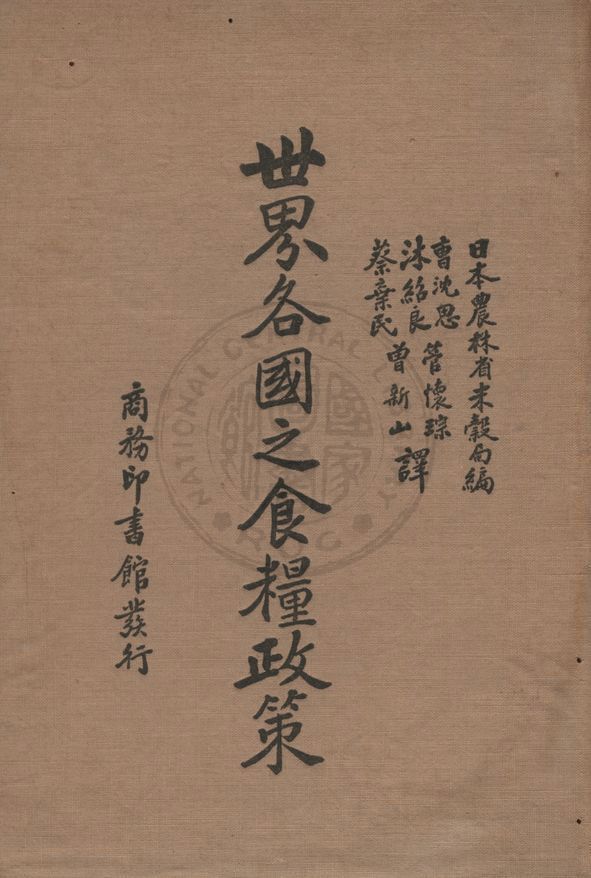 日本農林省米穀局編
曹沈思 管懷琮
沐紹良 曾新山
蔡棄民 譯
世界各國之食糧政策
商務印書館發行
NATIONAL CENTRAL LIBRARY
R.O.C
國家圖書館